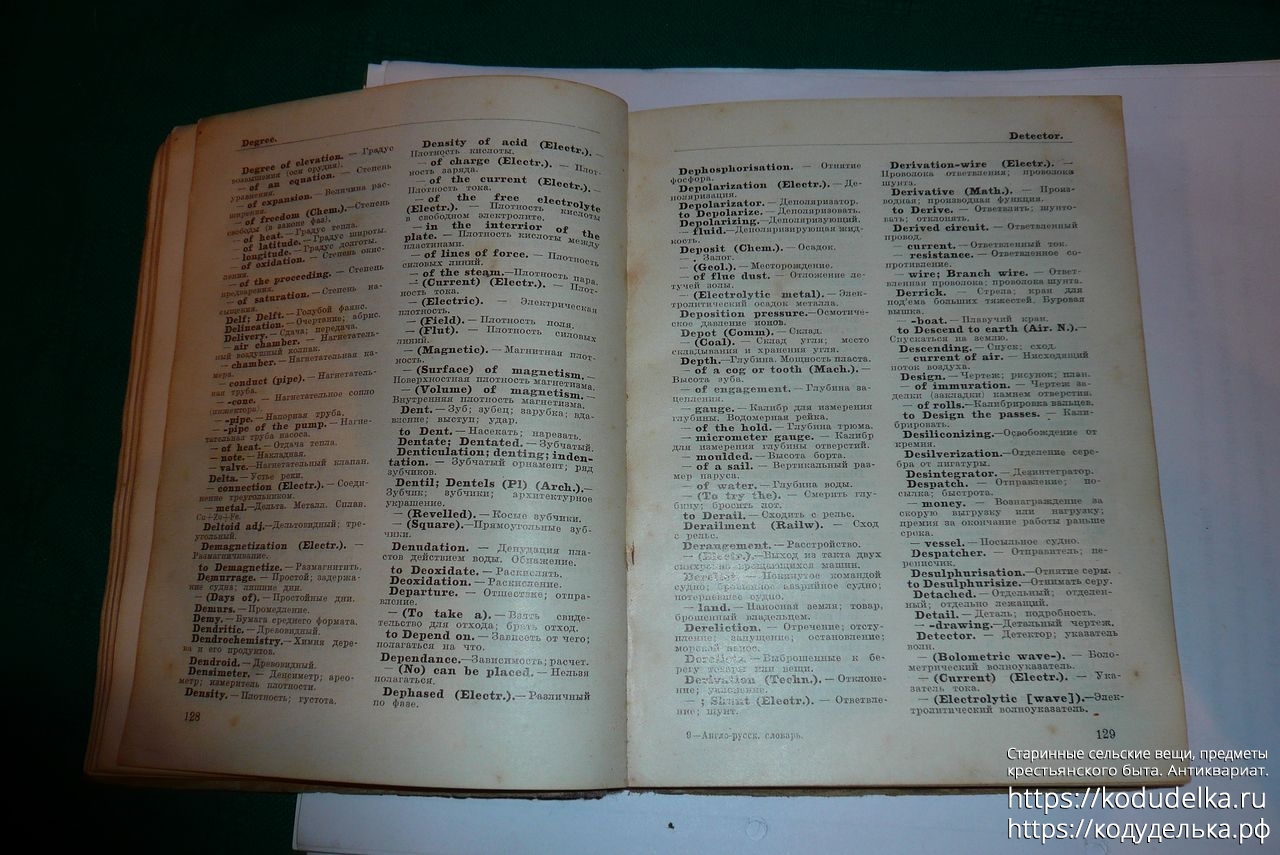 Degree.
Degree of elevation. — Градус
возвышения (оси орудия).
— of an equation. — Степень
уравнения.
— of expansion. — Величина рас-
ширения.
— of freedom (Chem.).—Степень
свободы (в законе фаз).
— of heat.—Градус тепла.
— of latitude.—Градус широты.
— longitude.—Градус долготы.
— of oxidation. — Степень окис-
ления.
— of the proceeding. — Степень
предварения.
— of saturation.—Степень на-
сыщения.
Delf; Delft.—Голубой фаянс.
Delineation.—Очертание; абрис.
Delivery.—Сдача; передача.
— air chamber. — Нагнетатель-
ный воздушный колпак.
— chamber.—Нагнетательная ка-
мера.
— conduct (pipe).—Нагнетатель-
ная труба.
— -cone. — Нагнетательное сопло
(инжектора).
— -pipe.—Напорная труба.
— -pipe of the pump. — Нагне-
тательная труба насоса.
— of heat.—Отдача тепла.
— note.—Накладная.
— valve.—Нагнетательный клапан.
Delta.—Устье реки.
— connection (Electr.). — Соеди-
нение треугольником.
— metal.—Дельта. Металл. Сплав.
Cu+Zn+Fe.
Deltoid adj.—Дельтовидный; тре-
угольный.
Demagnetization (Electr.). —
Размагничивание.
to Demagnetize. — Размагнитить.
Demurrage. — Простой; задержа-
ние судна; лишние дни.
— (Days of). — Простойные дни.
Demurs. — Промедление.
Demy.—Бумага среднего формата.
Dendritic.—Древовидный.
Dendrochemistry.—Химия дере-
ва и его продуктов.
Dendroid. — Древовидный.
Densimeter. — Денсиметр; арео-
метр; измеритель плотности.
Density.—Плотность; густота.
128
Density of acid (Electr.). —
Плотность кислоты.
— of charge (Electr.). — Плот-
ность заряда.
— of the current (Electr.). —
Плотность тока.
— of the free electrolyte
(Electr.). — Плотность кислоты
в свободном электролите.
— in the interrior of the
plate. — Плотность кислоты между
пластинами.
— of lines of force. — Плотность
силовых линий.
— of the steam.—Плотность пара.
— (Current) (Electr.). — Плот-
ность тока.
— (Electric). — Электрическая
плотность.
— (Field). — Плотность поля.
— (Flut). — Плотность силовых
линий.
— (Magnetic). — Магнитная плот-
ность.
— (Surface) of magnetism. —
Поверхностная плотность магнетизма.
— (Volume) of magnetism. —
Внутренняя плотность магнетизма.
Dent. — Зуб; зубец; зарубка; вда-
вление; выступ; удар.
to Dent. — Насекать; нарезать.
Dentate; Dentated. — Зубчатый.
Denticulation; denting; inden-
tation. — Зубчатый орнамент; ряд
зубчиков.
Dentil; Dentels (Pl) (Arch.).—
Зубчик; зубчики; архитектурное
украшение.
— (Revelled). — Косые зубчики.
— (Square). —Прямоугольные зуб-
чики.
Denudation. — Денудация пла-
стов действием воды. Обнажение.
to Deoxidate. — Раскислять.
Deoxidation. — Раскисление.
Departure. — Отшествие; отпра-
вление.
— (To take a). — Взять свиде-
тельство для отхода; брать отход.
to Depend on. — Зависеть от чего;
полагаться на что.
Dependance.—Зависимость; расчет.
— (No) can be placed. — Нельзя
полагаться.
Dephased (Electr.).—Различный
по фазе.
Detector.
Dephosphorisation. — Отнятие
фосфора.
Depolarization (Electr.). — Де-
поляризация.
Depolarizator. — Деполяризатор.
to Depolarize. — Деполяризовать.
Depolarizing.—Деполяризующий.
— fluid.—Деполяризирующая жид-
кость.
Deposit (Chem.) — Осадок.
— . Залог.
— (Geol.). — Месторождение.
— of flue dust. — Отложение ле-
тучей золы.
— (Electrolytic metal). — Элек-
тролитический осадок металла.
Deposition pressure.—Осмотиче-
ское давление ионов.
Depot (Comm). — Склад.
— (Coal). — Склад угля; место
складывания и хранения угля.
Depth.—Глубина. Мощность пласта.
— of a cog or tooth (Mach.). —
Высота зуба.
— of engagement. — Глубина за-
цепления.
— -gauge. — Калибр для измерения
глубины. Водомерная рейка.
— of the hold. — Глубина трюма.
— -micrometer gauge. — Калибр
для измерения глубины отверстий.
— moulded. — Высота борта.
— of a sail. — Вертикальный раз-
мер паруса.
— of water. — Глубина воды.
— (To try the). — Смерить глу-
бину; бросить лот.
to Derail. — Сходить с рельс.
Derailment (Railw). — Сход
с рельс.
Derangement. — Расстройство.
— (Electr.).—Выход из такта двух
синхронно вращающихся машин.
Derelict. — Покинутое командой
судно; брошенное аварийное судно;
потерпевшее судно.
— land. — Наносная земля; товар,
брошенный владельцем.
Dereliction. — Отречение; отсту-
пление; запущение; остановление;
морской нанос.
Derelicts. — Выброшенные к бе-
регу товары или вещи.
Derivation (Techn.). — Отклоне-
ние; уклонение.
— ; Shunt (Electr.). — Ответвле-
ние; шунт.
9—Англо-русск. словарь.
Derivation-wire (Electr.). —
Проволока ответвления; проволока
шунта.
Derivative (Math.). — Произ-
водная; производная функция.
to Derive. — Ответвлять; шунто-
вать; отклонять.
Derived circuit. — Ответвленный
провод.
— current. — Ответвленный ток.
— resistance. — Ответвленное со-
противление.
— wire; Branch wire. — Ответ-
вленная проволока; проволока шунта.
Derrick. — Стрела; кран для
под'ема больших тяжестей. Буровая
вышка.
— -boat. — Плавучий кран.
to Descend to earth (Air. N.).—
Спускаться на землю.
Descending. — Спуск; сход.
— current of air. — Нисходящий
поток воздуха.
Design. — Чертеж; рисунок; план.
— of immuration. — Чертеж за-
делки (закладки) камнем отверстия.
— of rolls.—Калибрировка вальцев.
to Design the passes. — Кали-
брировать.
Desiliconizing.—Освобождение от
кремния.
Desilverization.—Отделение сере-
бра от лигатуры.
Desintegrator. — Дезинтегратор.
Despatch. — Отправление; по-
сылка; быстрота.
— money. — Вознаграждение за
скорую выгрузку или нагрузку;
премия за окончание работы раньше
срока.
— vessel. — Посыльное судно.
Despatcher. — Отправитель; пе-
реписчик.
Desulphurisation.—Отнятие серы.
to Desulphurisize.—Отнимать серу.
Detached. — Отдельный; отделен-
ный; отдельно лежащий.
Detail. — Деталь; подробность.
— -drawing.—Детальный чертеж.
Detector. — Детектор; указатель
волн.
— (Bolometric wave-). — Боло-
метрический волноуказатель.
— (Current) (Electr.). — Ука-
затель тока.
— (Electrolytic [wave]).—Элек-
тролитический волноуказатель.
129
Старинные сельские вещи, предметы
крестьянского быта. Антиквариат.
https://kodudelka.ru
https://кодуделька.рф